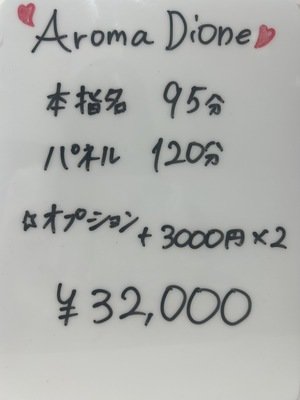 Aroma Dione
本指名 95分
パネル 120分
☆オプション +3000円×2
¥32,000